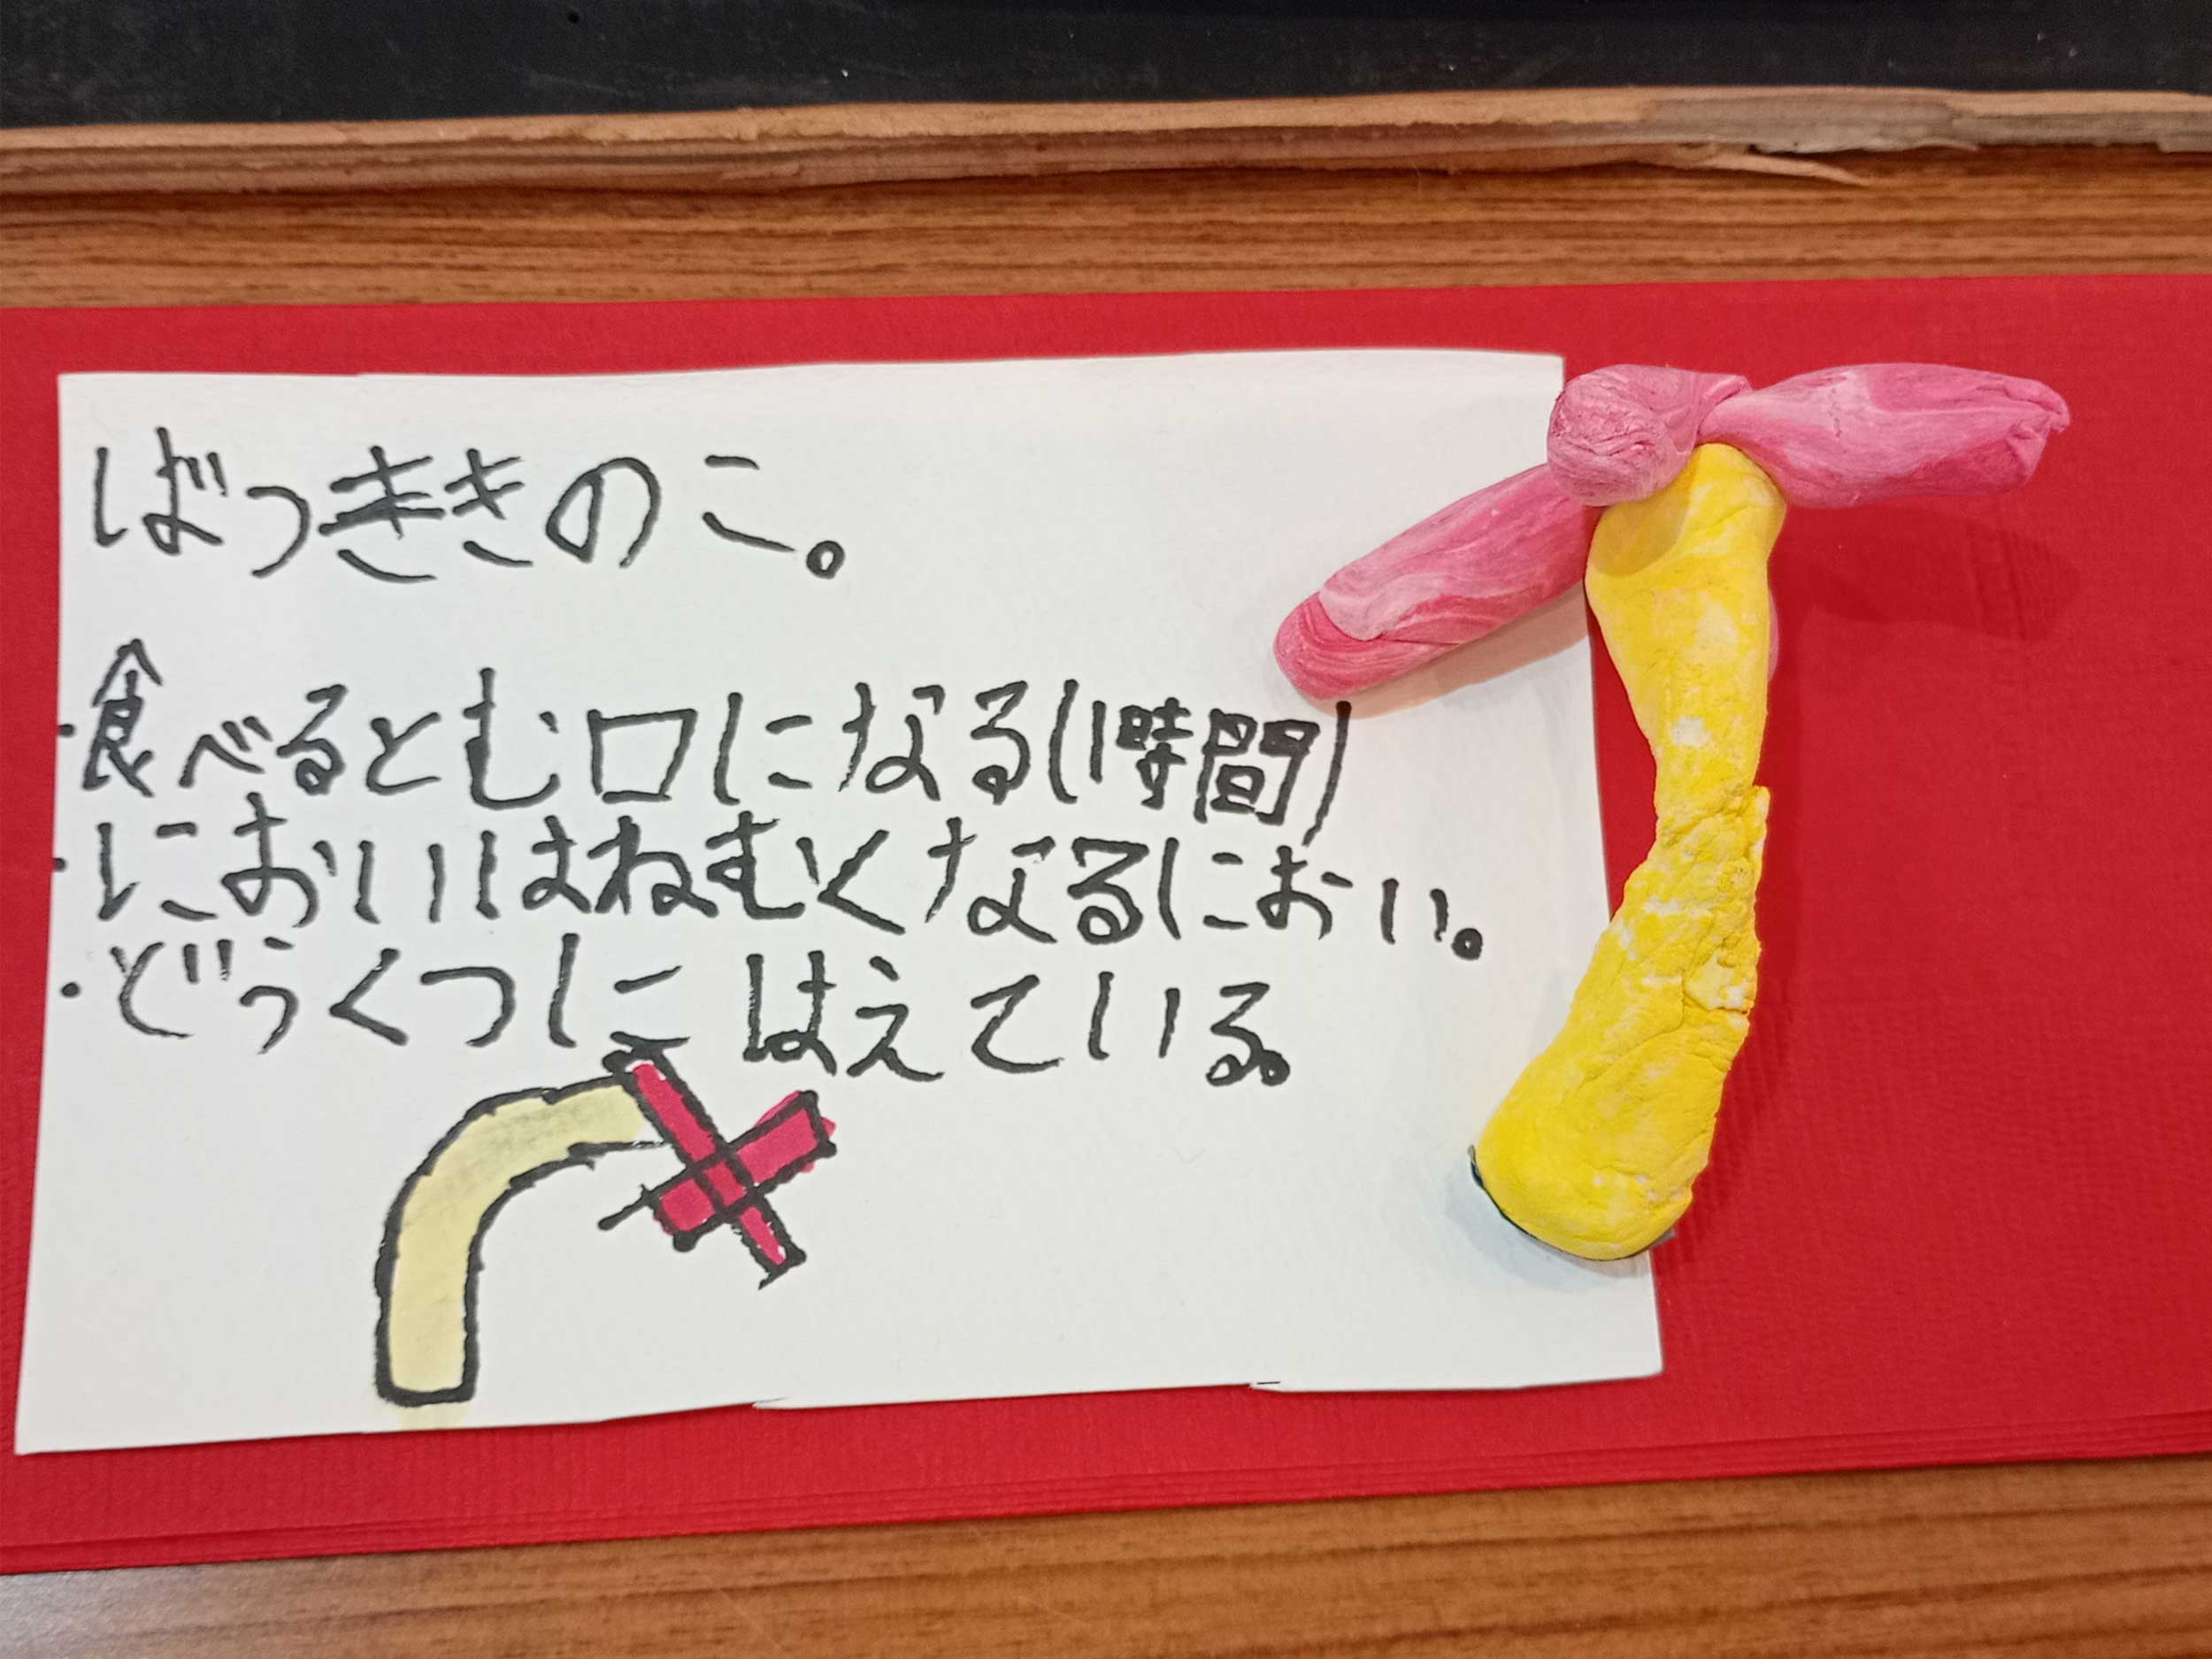 ばっききのこ。
・食べるとむ口になる(1時間)
・においはねむくなるにおい。
・どうくつにはえている。